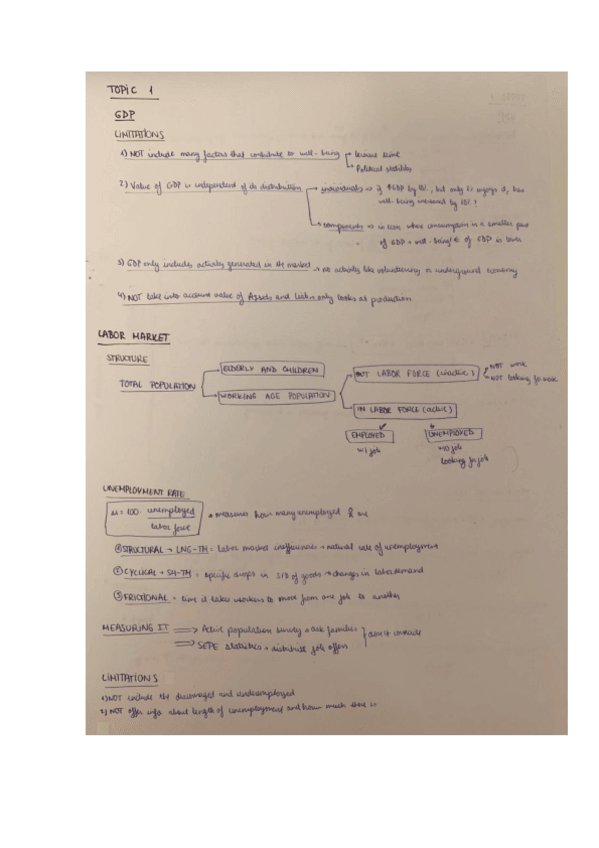 TOPIC 1
GDP
LIMITATIONS
1) NOT include many factors that contribute to well-being → Leisure time
→ Political stability
2) Value of GDP is independent of its distribution → individuals → if ↑GDP by 10%, but only 1 enjoys it, has
well-being increased by 10%?
→ components → in econ where consumption is a smaller part
of GDP → well-being/€ of GDP is lower
3) GDP only includes activity generated in the market → no activity like volunteering or underground economy
4) NOT take into account value of Assets and only looks at production
LABOR MARKET
STRUCTURE
TOTAL POPULATION
ELDERLY AND CHILDREN
WORKING AGE POPULATION
NOT LABOR FORCE (inactive)
NOT work
NOT looking for work
IN LABOR FORCE (active)
EMPLOYED
UNEMPLOYED
w/ job
w/o job
looking for job
UNEMPLOYMENT RATE
u = 100 · unemployed
labor force
→ measures how many unemployed are
① STRUCTURAL → LNG-TM = Labor market inefficiencies → natural rate of unemployment
② CYCLICAL → SH-TM = specific drops in S/D of goods → changes in labor demand
③ FRICTIONAL = time it takes workers to move from one job to another
MEASURING IT ⇒ Active population survey → ask families
⇒ SEPE statistics → job offers
LIMITATIONS
1) NOT include the discouraged and underemployed
2) NOT offer info about length of unemployment and how much there is